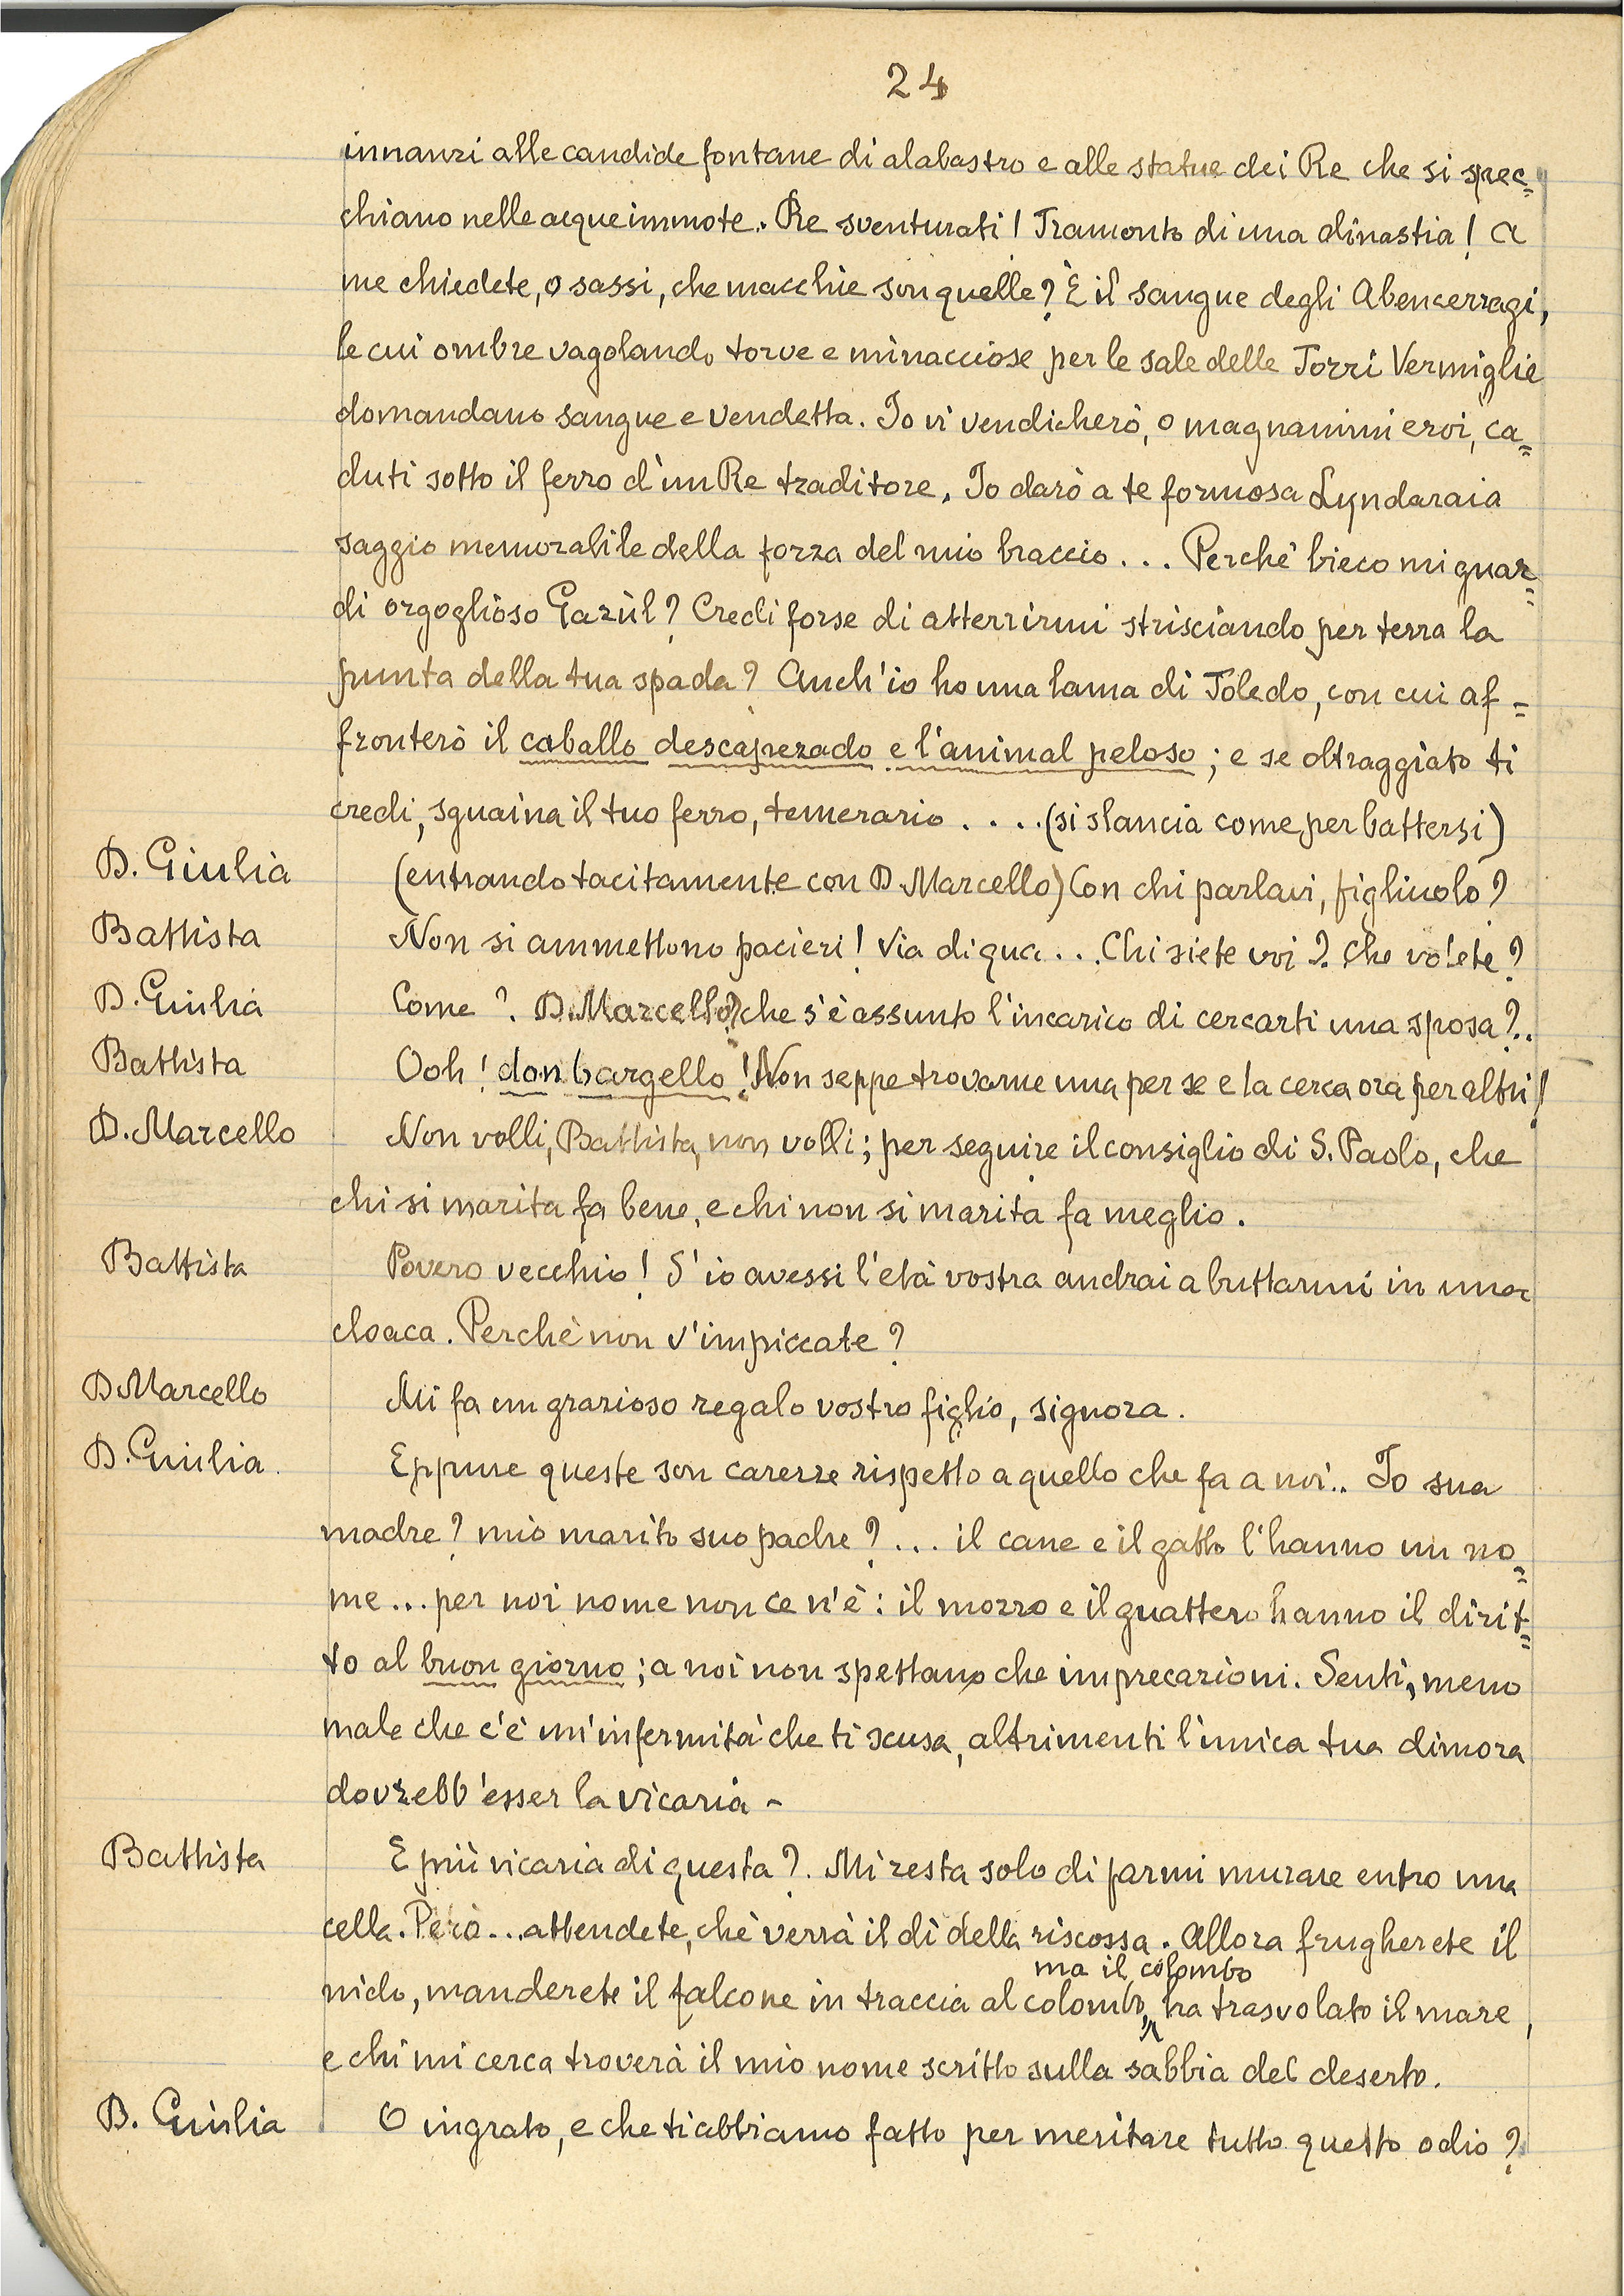 24
innanzi alle candide fontane di alabastro e alle statue dei Re che si spec=
chiano nelle acque immote. Re sventurati! Tramonto di una dinastia! A
me chiedete, o sassi, che macchie son quelle? È il sangue degli Abencerragi,
le cui ombre vagolando torve e minacciose per le sale delle Torri Vermiglie
domandano sangue e vendetta. Io vi vendicherò, o magnanimi eroi, ca=
duti sotto il ferro d'un Re traditore. Io darò a te formosa Lyndaraia
saggio memorabile della forza del mio braccio... Perchè bieco mi guar=
di orgoglioso Gazùl? Credi forse di atterrirmi strisciando per terra la
punta della tua spada? Anch'io ho una lama di Toledo, con cui af=
fronterò il caballo descapezado e l'animal peloso; e se oltraggiato ti
credi, sguaina il tuo ferro, temerario.... (si slancia come per battersi)
D. Giulia (entrando tacitamente con D. Marcello) Con chi parlavi, figliuolo?
Battista Non si ammettono pacieri! Via di qua... Chi siete voi? Che volete?
D. Giulia Come? D. Marcello? che s'è assunto l'incarico di cercarti una sposa?..
Battista Ooh! don bargello! Non seppe trovarne una per se e la cerca ora per altri!
D. Marcello Non volli, Battista, non volli; per seguire il consiglio di S. Paolo, che
chi si marita fa bene, e chi non si marita fa meglio.
Battista Povero vecchio! S'io avessi l'età vostra andrai a buttarmi in una
cloaca. Perchè non v'impiccate?
D Marcello Mi fa un grazioso regalo vostro figlio, signora.
D. Giulia. Eppure queste son carezze rispetto a quello che fa a noi.. Io sua
madre? mio marito suo padre?... il cane e il gatto l'hanno un no=
me... per noi nome non ce n'è: il mozzo e il guattero hanno il dirit=
to al buon giorno; a noi non spettano che imprecazioni. Senti, meno
male che c'è un'infermità che ti scusa, altrimenti l'unica tua dimora
dovrebb'esser la vicaria -
Battista E più vicaria di questa?. Mi resta solo di farmi murare entro una
cella. Però... attendete, chè verrà il dì della riscossa. Allora frugherete il
ma il colombo
nido, manderete il falcone in traccia al colombo, ha trasvolato il mare,
e chi mi cerca troverà il mio nome scritto sulla sabbia del deserto.
D. Giulia O ingrato, e che ti abbiamo fatto per meritare tutto questo odio?